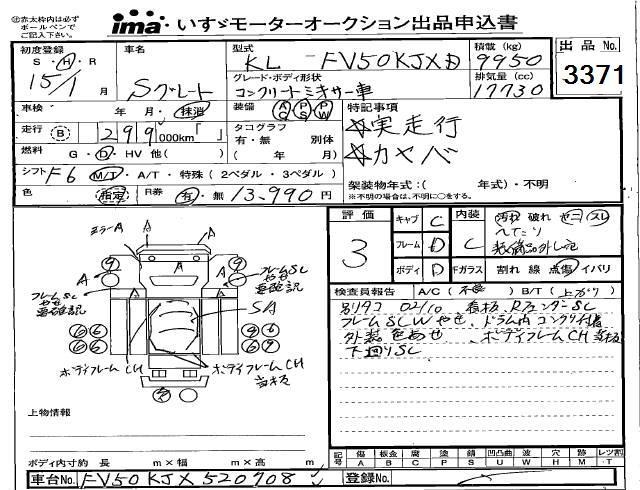 ①赤太枠内は必ず
ボールペンで
ご記入ください
ima いすゞモーターオークション出品申込書
初度登録
S・H・R
15/1 月
車名
Sグレート
型式
KL - FV50KJXD
グレード・ボディ形状
コンクリートミキサー車
積載 (kg)
9950
排気量 (cc)
17730
出品 No.
3371
車検 年 月・抹消
走行 B 299000km「 」
燃料 G・D・HV 他( )
シフト F6 M/T・A/T・特殊(2ペダル・3ペダル)
色 指定 R券 有・無 13,990円
装備 AC PS PW
タコグラフ
有・無 別体
( 年 月)
特記事項
☆実走行
☆カヤバ
架装物年式:( 年式)・不明
※不明の場合は、不明に○をする。
評価
3
キャブ C
フレーム D
ボディ D
内装 C
汚れ 破れ ヤニ スレ
へたり
Fガラス 割れ 線 点傷 イバリ
検査員報告 A/C( ) B/T(上がり)
別タコ 02/10 看板、RフェンダーSC
フレームSCWやせ、ドラム内コンクリ付着
外装色あせ、ボディフレームCH
下回りSC
ミラーA
A
A
A
A
A
フレームSC
やせ
要確認
フレームSC
やせ
要確認
SA
ボディフレームCH
ボディフレームCH
上物情報
ボディ内寸約 長 m×幅 m×高 m
記号 傷 板金 腐 塗 錆 凹凸曲 波 穴 跡 レツ割
A B C P S U W H M T
車台No. FV50KJX520708
登録No.